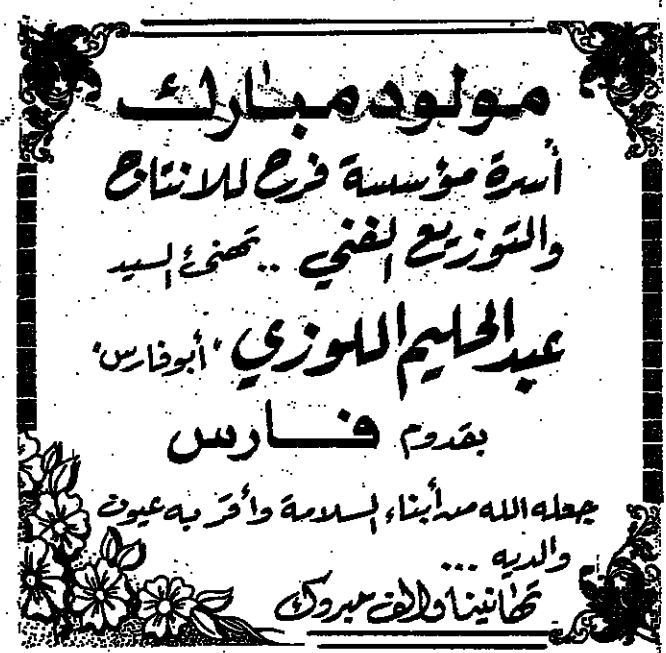 مولود مبارك
أسرة مؤسسة فرح للانتاج
والتوزيع الفني .. تهنئ السيد
عبدالحليم اللوزي "أبوفارس"
بقدوم فارس
جعله الله من أبناء السلامة وأقر به عيون
والديه ...
تهانينا والف مبروك